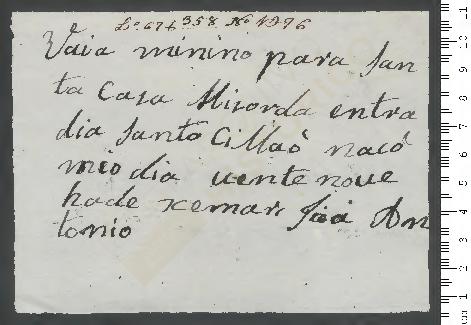 Lº 67 f 358 Nº 1396
Vaia minino para San
ta Casa Misorda entra
dia Santo Cillaõ nacó
mio dia vente noue
hade xemar José An
tonio